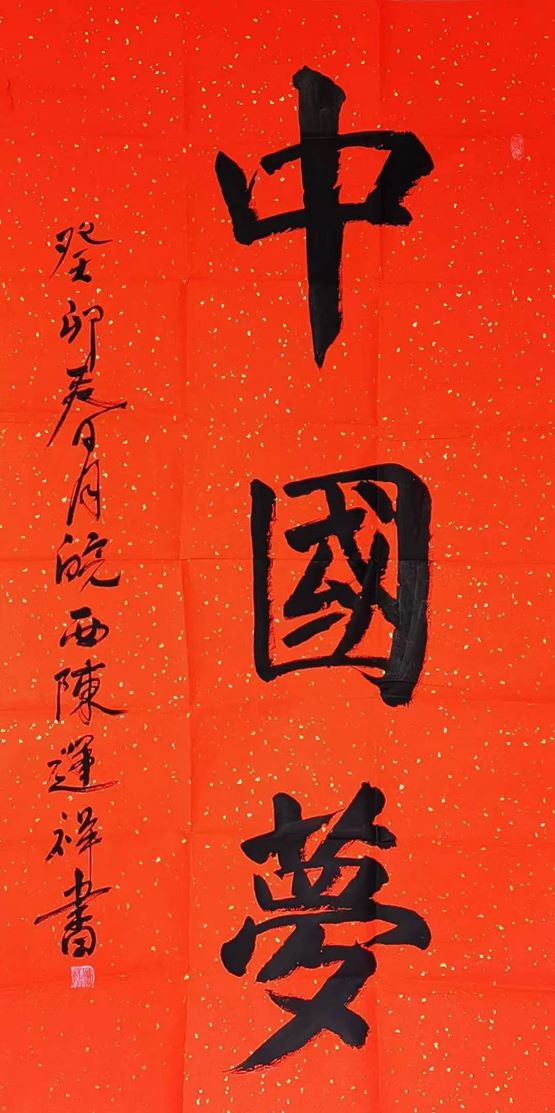 中國夢
癸卯春月皖西陳運祥書